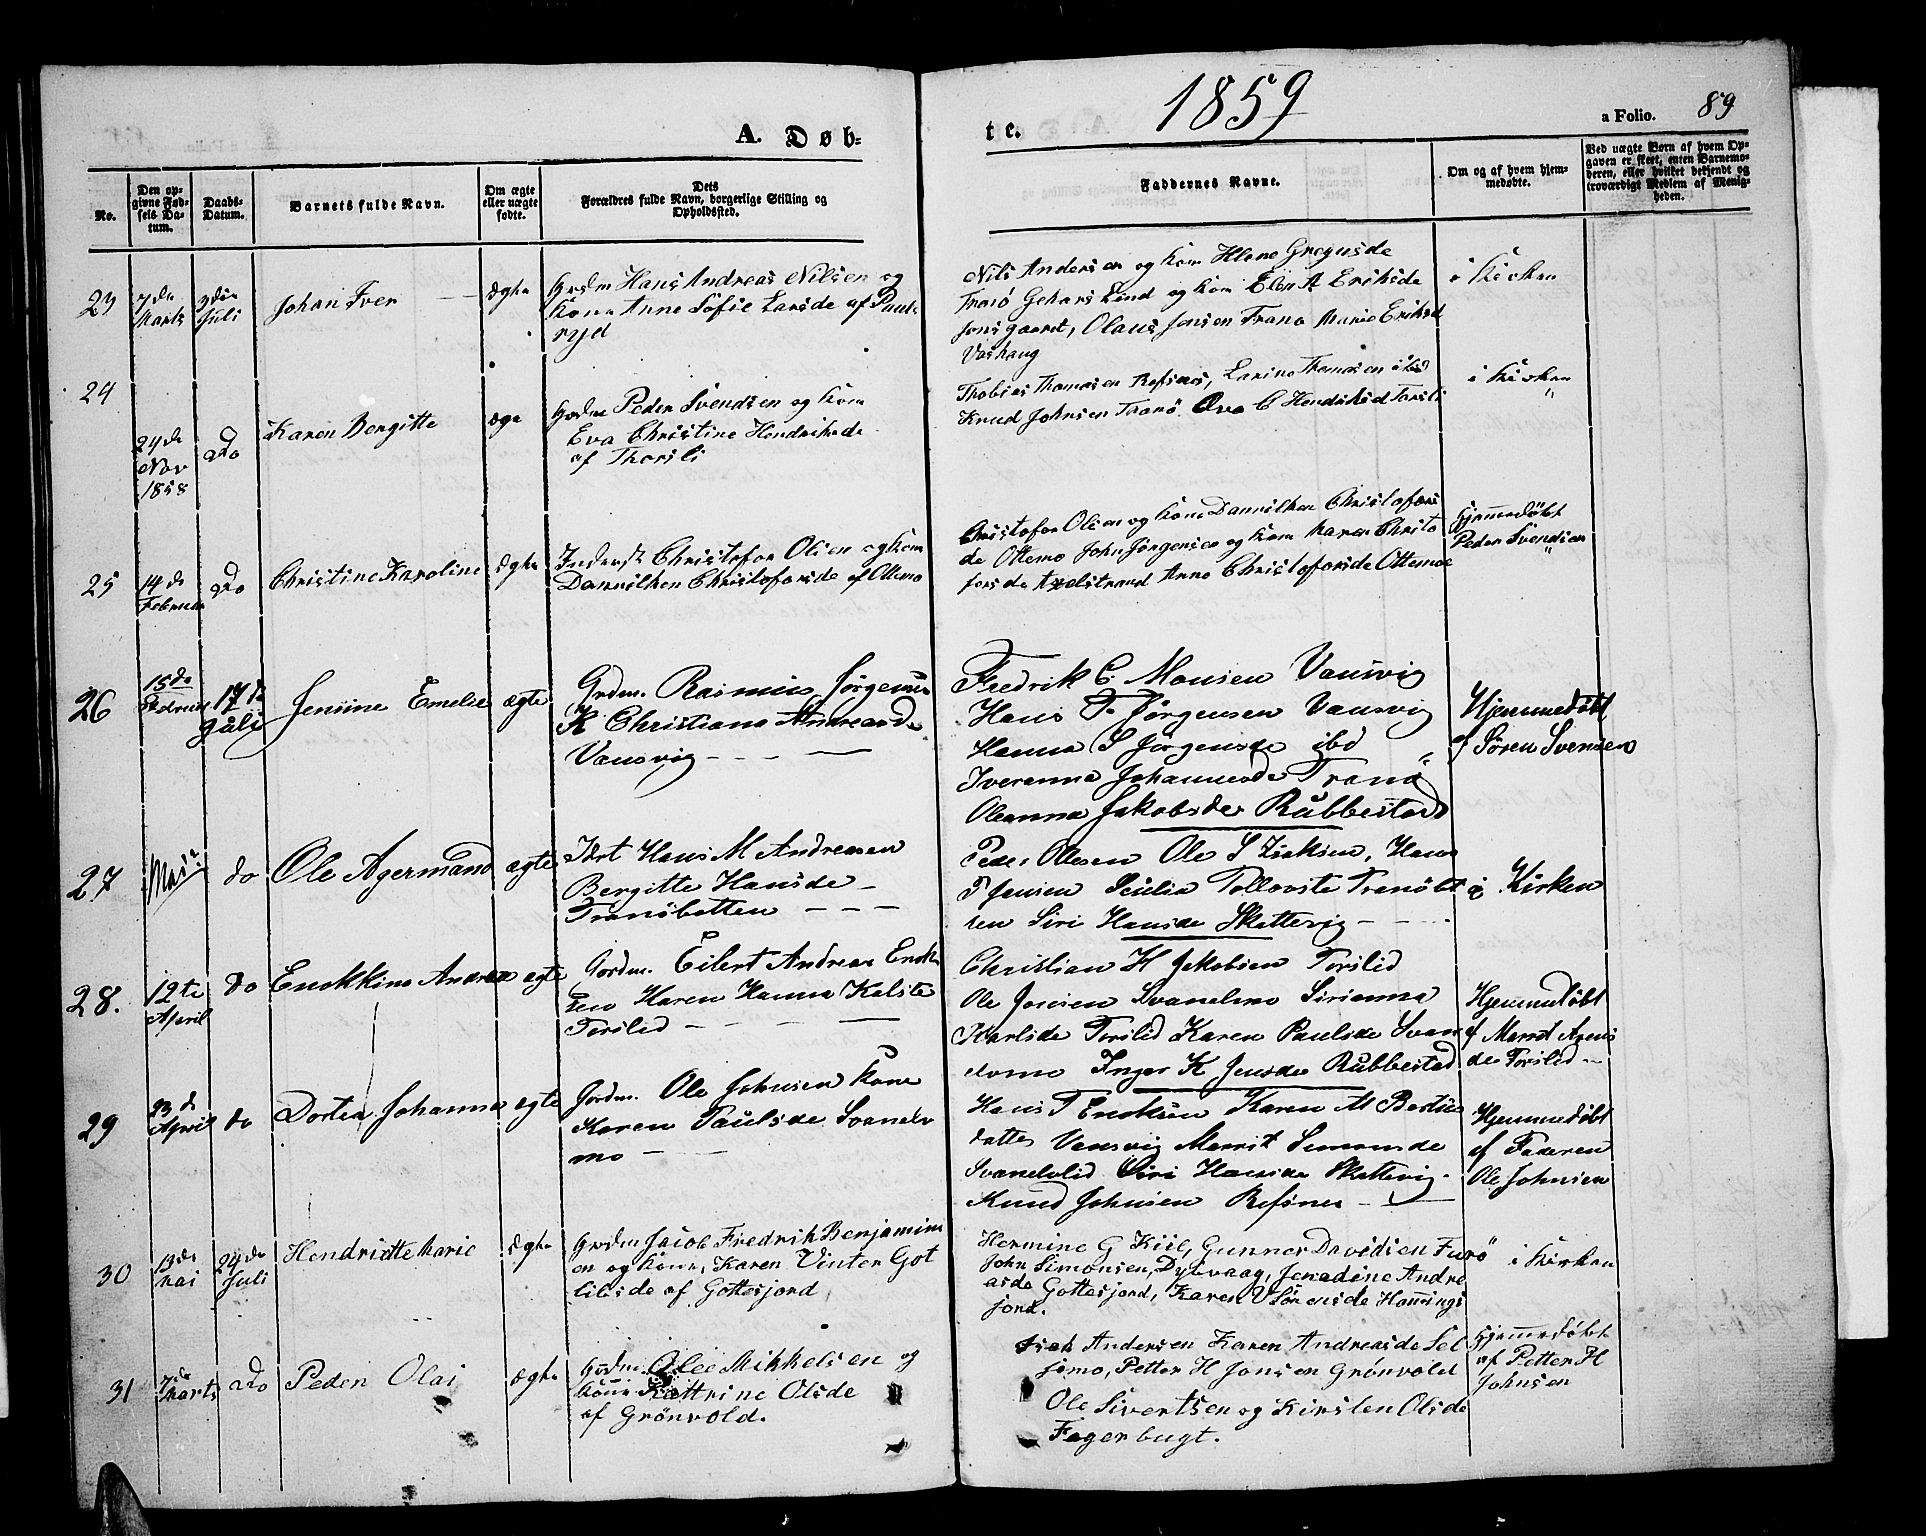 A. Døb-
te.
1859
a Folio. 89
No.
Den op-
givne Fød-
sels Da-
tum.
Daabs-
Datum.
Barnets fulde Navn.
Om ægte
eller uægte
fødte.
Dets
Forældres fulde Navn, borgerlige Stilling og
Opholdssted.
Faddernes Navne.
Om og af hvem hjem-
medøbte.
Ved uægte Børn af hvem Op-
gaven er skeet, enten Barnemo-
deren, eller hvilket bekjendt og
troværdigt Medlem af Menig-
heden.
23
7de
Marts
3die
Juli
Johan Iver
ægte
Grdm Hans Andreas Nilsen og
Kone Anne Sofie Larsde af Pauls
ryd
Nils Andersen og Kone Gregusde
Tranø Lind og Kone Elen A Eriksde
Jensgaard, Olaus Jensen Tranø Marie Eriksd
Vashaug
i Kirken
24
24de
Nov
1858
Do
Karen Bergitte
ægte
Grdm Peder Svendsen og Kone
Eva Christine Hendriksde
af Thorsli
Thobias Thomasen Refsnes, Larine Thomasen ibd
Knud Johnsen Tranø. Eva C Hendriksd Torsli
i Kirken
25
14de
Februar
Do
Christine Karoline
ægte
Inderst Christofer Olsen og Kone
Danniken Christofersde af Ottemo
Christofer Olsen og Kone Danniken Christofers
de Ottemo John Jørgensen og Kone Maren Christo
fersde Anne Christofersde Ottemoe
Hjemmedøbt
Peder Svendsen
26
15de
Februar
17de
Juli
Jensine Emelie
ægte
Grdm. Rasmus Jørgensen
K Christiana Andreasde
Vansvig
Fredrik C. Monsen Vansvig
Hans P. Jørgensen Vansvig
Hanna S Jørgensde ibd
Iveranna Johannesde Tranø
Oleanna Jakobsde Rubbestad
Hjemmedøbt
af Søren Svensen
27
Mai
do
Ole Agermand
ægte
Idst Hans M Andreasen
Bergitte Hansde
Tranøbotten
Peder Olesen Ole S Isaksen, Hans
P Jensen Tranøbot
ten Siri Hansde Skattevig
i Kirken
28.
12te
April
do
Enokkine Andrea
ægte
Gordm. Eilert Andreas Enok
sen Karen Hanna
Torslid
Christian H Jakobsen Torslid
Ole Jonsen Svanelvmo Sirianna
Karlsde Torslid Karen Paulsde Svan
elvmo Inger K Jensde Rubbestad
Hjemmedøbt
af Marrit Arens
de Torslid
29
23de
April
do
Dortea Johanna
ægte
Gordm. Ole Johnsen Kone
Karen Paulsde Svanelv
mo
Hans T Enoksen Karen M Bertius
datter Vansvig Marrit Simonsde
Svanelvlid Siri Hansde Skattevig
Knud Johnsen Refsnes
Hjemmedøbt
af Faderen
Ole Johnsen
30
13de
Mai
24de
Juli
Hendriette Marie
ægte
Grdm Jacob Fredrik Benjamins
en og Kone, Karen Vinter Got
libsde af Gottesjord
Hermine G Kiil, Gunner Davidsen Furø
John Simonsen, Dybvaag, Jenadine Andre
asde Gottesjord, Karen V Sørensde Hemmings
jord.
i Kirken
31
7de
Marts
Do
Peder Olai
ægte
Grdm Olee Mikkelsen og
Kone Kattrine Olsde
af Grønvold.
Isak Andersen Karen Andreasde Sel
jemo, Petter H Jonsen Grønvold
Ole Sivertsen og Kirsten Olsde
Fagerbugt.
Hjemmedøbt
af Petter H
Johnsen